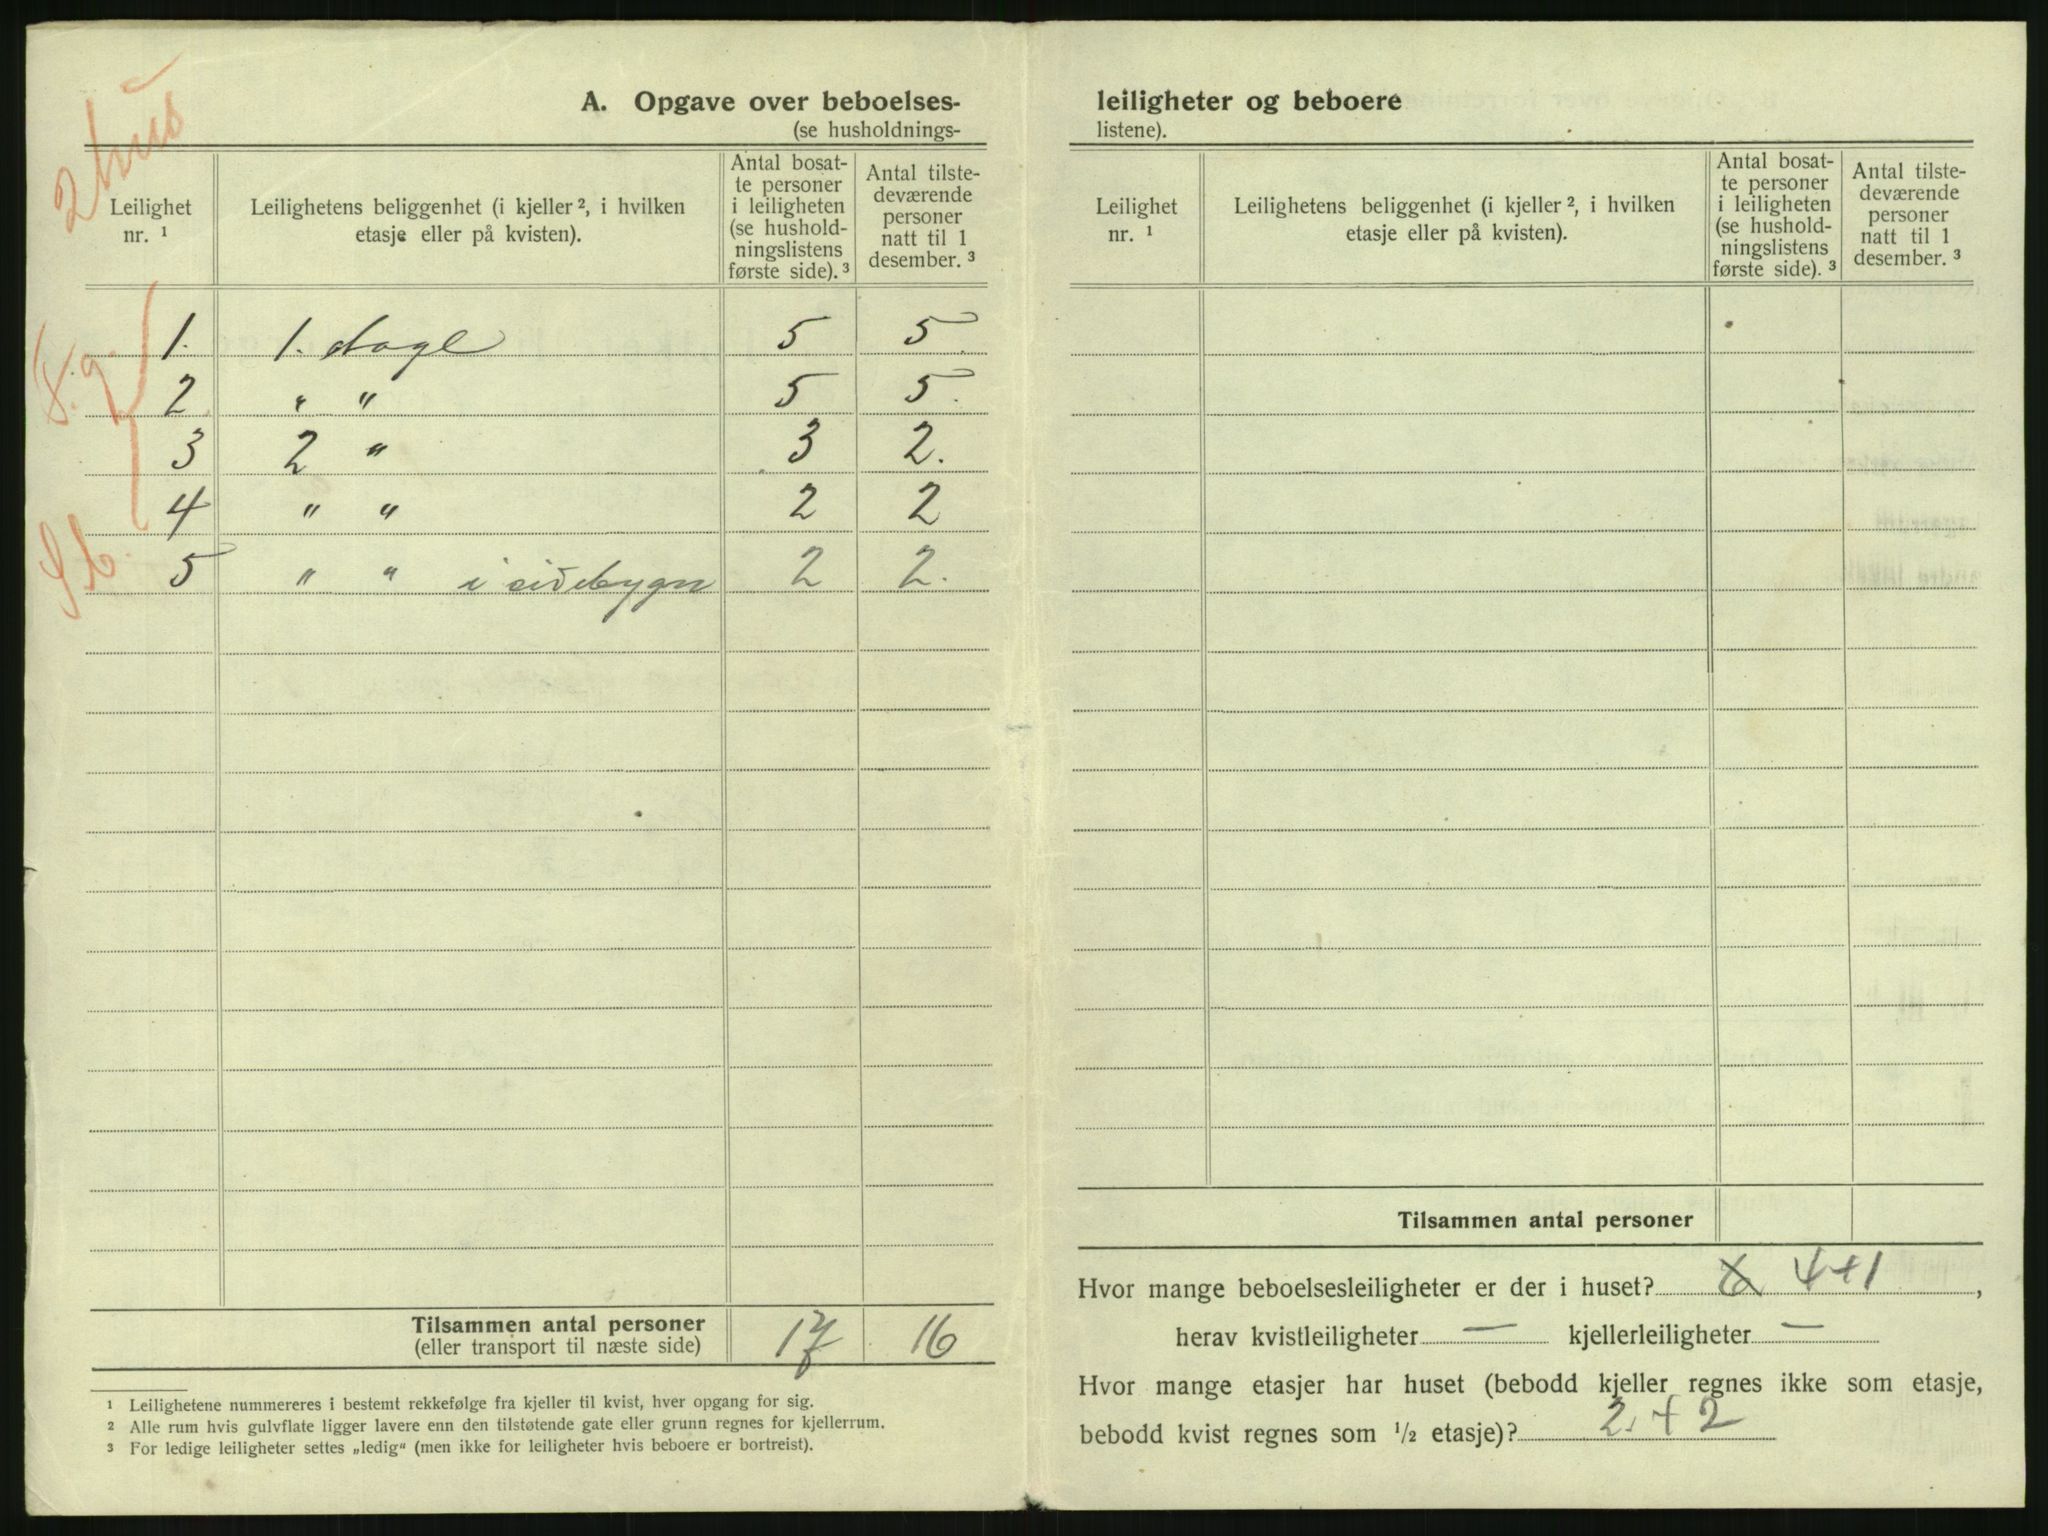 2 hus
A. Opgave over beboelses-
(se husholdnings-
Leilighet nr. 1
Leilighetens beliggenhet (i kjeller 2, i hvilken etasje eller på kvisten).
Antal bosat-
te personer
i leiligheten
(se hushold-
ningslistens
første side). 3
Antal tilste-
deværende
personer
natt til 1
desember. 3
F.g.
1. 1. etage 5 5.
2. " " 5 5.
3 2 " 3 2.
4 " " 2 2
Sb.
5 " " i sidebygn 2 2.
Tilsammen antal personer 17 16
(eller transport til næste side)
1 Leilighetene nummereres i bestemt rekkefølge fra kjeller til kvist, hver opgang for sig.
2 Alle rum hvis gulvflate ligger lavere enn den tilstøtende gate eller grunn regnes for kjellerrum.
3 For ledige leiligheter settes „ledig“ (men ikke for leiligheter hvis beboere er bortreist).
leiligheter og beboere
listene).
Leilighet nr. 1
Leilighetens beliggenhet (i kjeller 2, i hvilken etasje eller på kvisten).
Antal bosat-
te personer
i leiligheten
(se hushold-
ningslistens
første side). 3
Antal tilste-
deværende
personer
natt til 1
desember. 3
Tilsammen antal personer
Hvor mange beboelsesleiligheter er der i huset? 4+1,
herav kvistleiligheter — kjellerleiligheter —
Hvor mange etasjer har huset (bebodd kjeller regnes ikke som etasje,
bebodd kvist regnes som 1/2 etasje)? 2. + 2